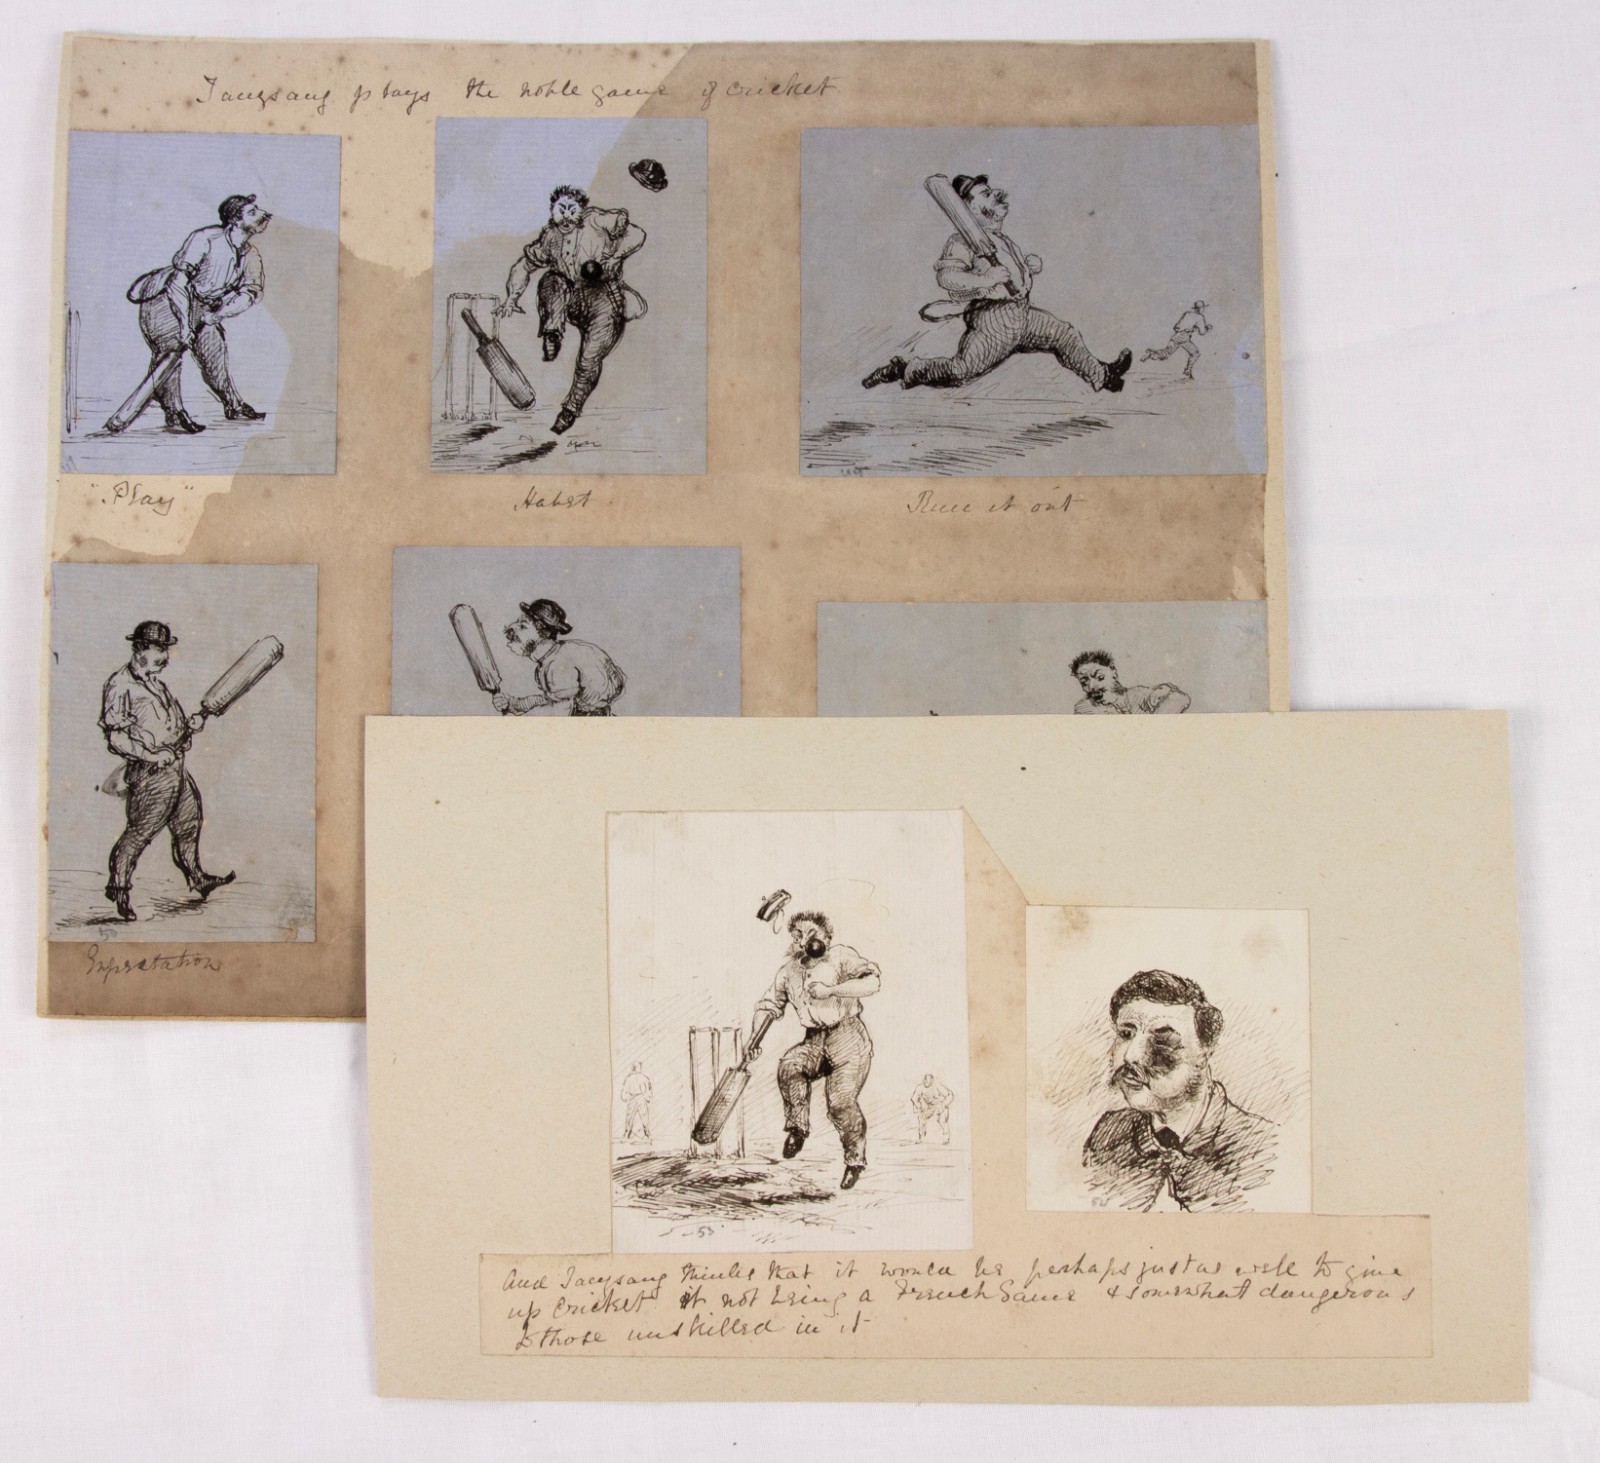 Jacysang plays the noble game of cricket
"Play"
Habet
Run it out
Expectation
50
53
And Jacysang thinks that it would be perhaps just as well to give
up cricket it not being a French Game & somewhat dangerous
to those unskilled in it